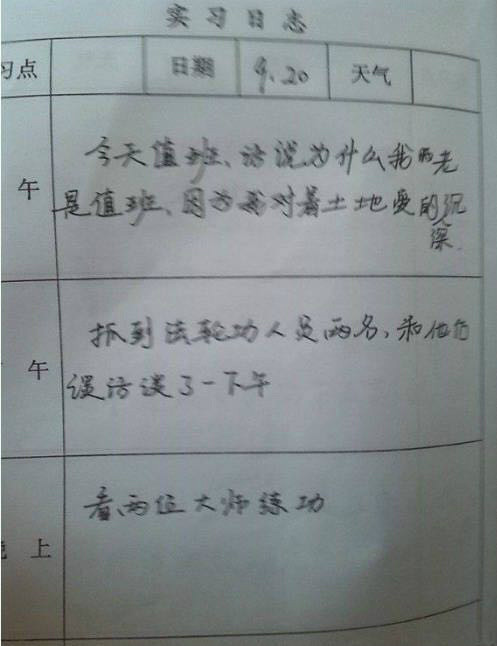 实习日志
习点 日期 9.20 天气
午 今天值班、话说为什么我的老
是值班、因为我对着土地爱的沉
深.
午 抓到法轮功人员两名,和他们
谈话谈了一下午
晚上 看两位大师练功